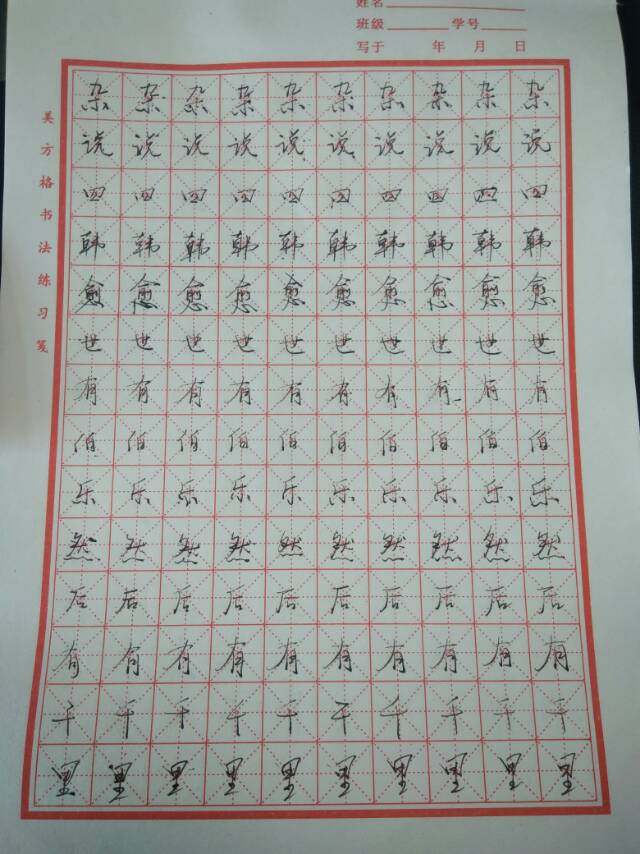 姓名
班级 学号
写于 年 月 日
美方格书法练习笺
杂杂杂杂杂杂杂杂杂杂
说说说说说说说说说说
四四四四四四四四四四
韩韩韩韩韩韩韩韩韩韩
愈愈愈愈愈愈愈愈愈愈
世世世世世世世世世世
有有有有有有有有有有
伯伯伯伯伯伯伯伯伯伯
乐乐乐乐乐乐乐乐乐乐
然然然然然然然然然然
后后后后后后后后后后
有有有有有有有有有有
千千千千千千千千千千
里里里里里里里里里里